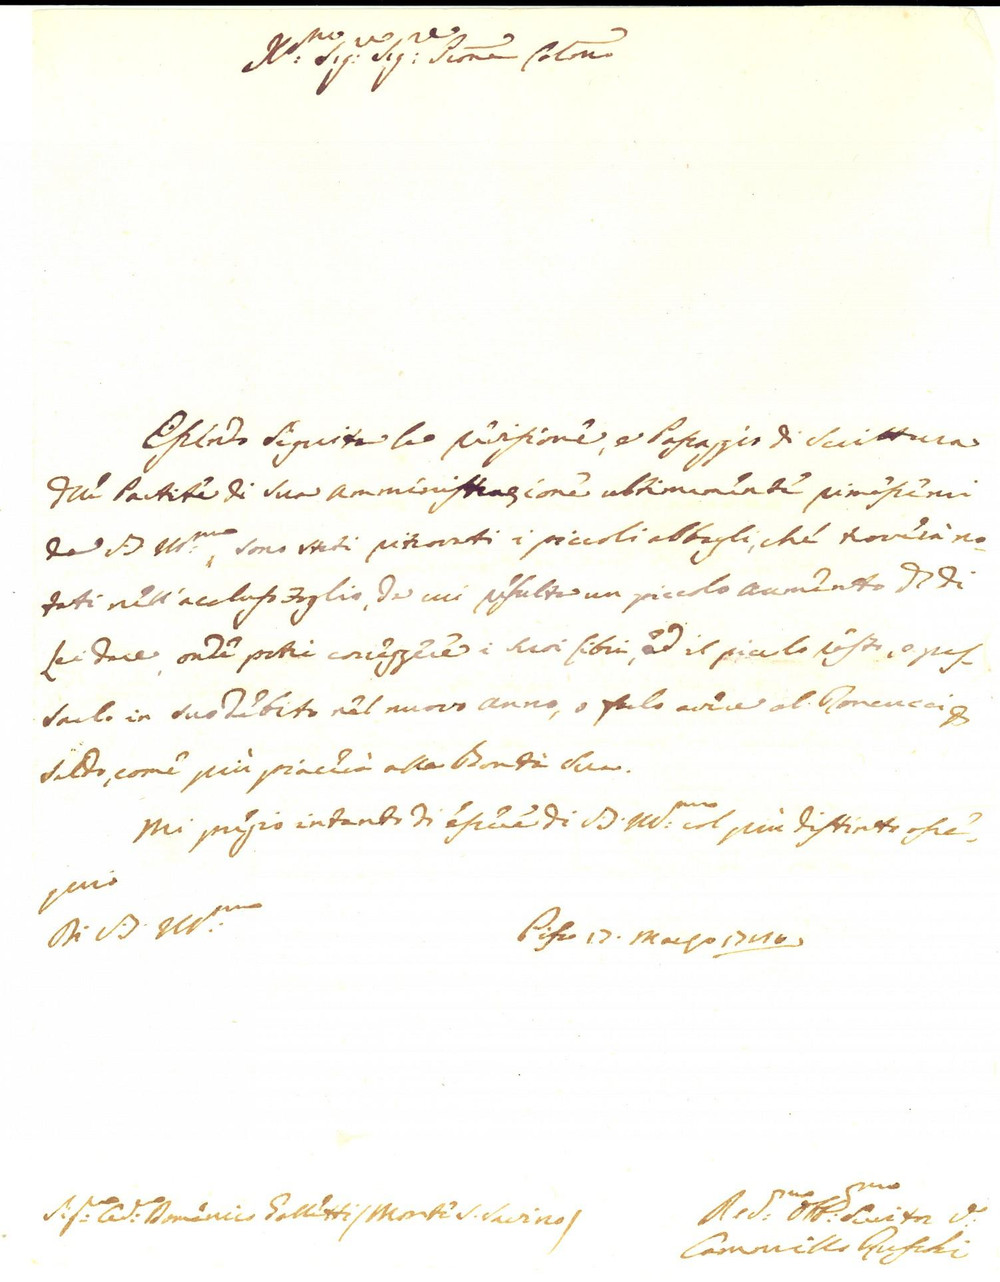 Ill:mo Sig:re Sig:re Prone Colmo
Essendo seguita la revisione, e Passaggio di Scrittura
delle Partite di sua amministrazione ultimamente rimessemi
da V.S. Ill:ma, sono stati ritrovati i piccoli abbagli, che troverà no-
tati nell'accluso Foglio, da cui resulta un piccolo aumento di
Lei dare, onde potrà correggere i suoi libri, ed il piccolo resto, o pas-
sarlo in suo debito nel nuovo anno, o farlo avere al Roncucci p
saldo, come più piacerà alla Bontà Sua.
Mi pregio intanto di essere di V.S. Ill:ma col più distinto osse-
quio
Di V.S. Ill:ma
Pisa 17. Marzo
Sig:re Cav:re Domenico Galletti (Monte S. Savino)
Dev:mo Obb:mo Servitor V:
Cammillo Ruschi